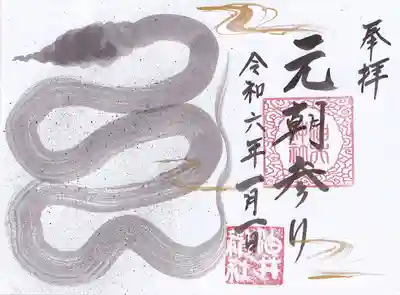 奉拝
元朝参り
令和六年一月一日